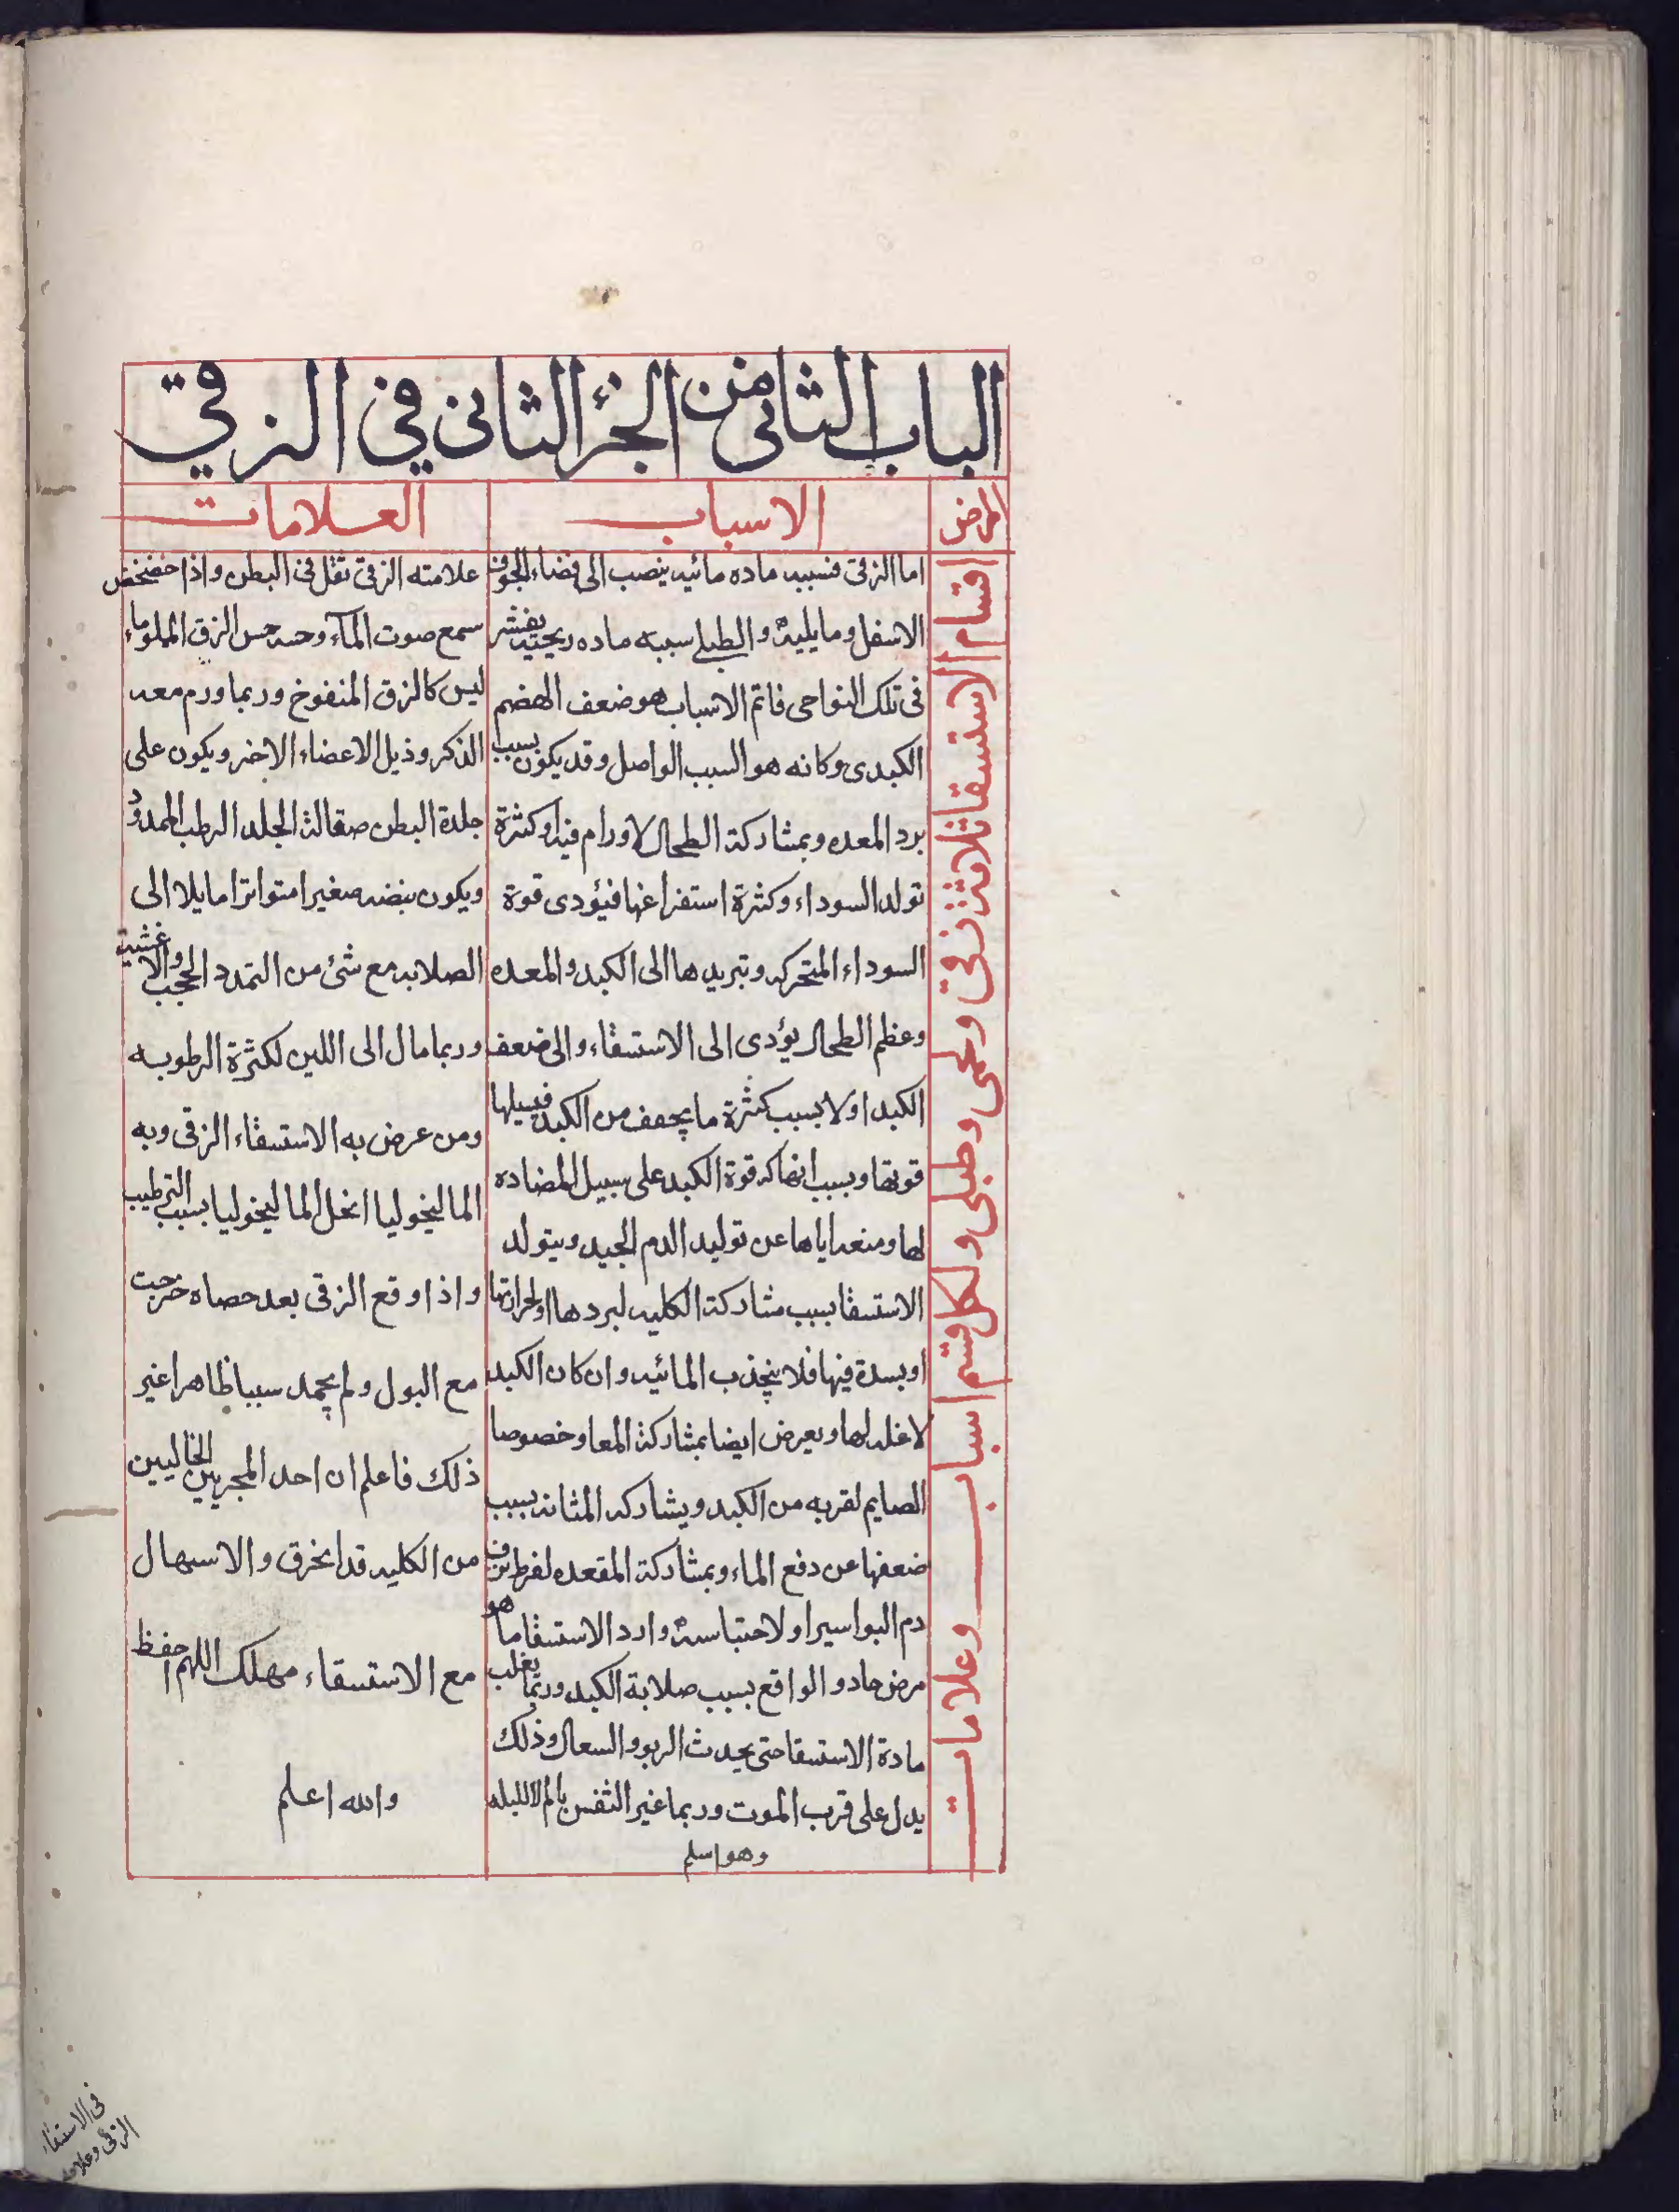 الباب الثانى من الجزء الثانى في الزقي
المرض
الاسباب
العلامات
اقسام الاستسقا ثلاثة زقى ولحمى وطبلى ولكل قسم اسباب وعلامات
اما الزقى فسببه ماده مائيه ينصب الى فضاء الجوف
الاسفل وما يليه والطبلى سببه ماده ريحيه يفشر
فى تلك النواحى فاتم الاسباب هو ضعف الهضم
الكبدى وكانه هو السبب الواصل وقد يكون بسبب
برد المعده وبمشاركة الطحال لاورام فيه او كثرة
تولد السوداء وكثرة استفراغها فيؤدى قوة
السوداء المتحركه وتبريدها الى الكبد والمعده
وعظم الطحال يؤدى الى الاستسقاء والى ضعف
الكبد اولا بسبب كثرة ما يجفف من الكبد فيسلها
قوتها وبسبب انهاكه قوة الكبد على سبيل المضاده
لها ومنعه اياها عن توليد الدم الجيد ويتولد
الاستسقا بسبب مشاركة الكليه لبردها او لحرارتها
او بسدة فيها فلا ينجذب المائيه وان كان الكبد
لا غله لها ويعرض ايضا بمشاركة المعا وخصوصا
الصايم لقربه من الكبد ويشاركه المثانه بسبب
ضعفها عن دفع الماء وبمشاركة المقعده لفرط نزف
دم البواسير او لاحتباسه وارد الاستسقا ما هو
مرض حاد والواقع بسبب صلابة الكبد وربما يغلب
مادة الاستسقا حتى يحدث الربو والسعال وذلك
يدل على قرب الموت وربما غير الثفس بالم لالليله
وهو اسلم
علامته الزقى ثقل فى البطن واذا خضخض
سمع صوت المآء وحسه حس الزق المملو ماء
ليس كالزق المنفوخ وربما ورم معه
الذكر وذيل الاعضاء الاخر ويكون على
جلدة البطن صقالة الجلد الرطب الممدود
ويكون نبضه صغيرا متواترا مايلا الى
الصلابه مع شئ من التمدد الحجب والاغشيه
وربما مال الى اللين لكثرة الرطوبه
ومن عرض به الاستسقاء الزقى وبه
الماليخوليا انحل الماليخوليا بسبب الترطيب
واذا وقع الزقى بعد حصاه خرجت
مع البول ولم يجمد سببا ظاهرا غير
ذلك فاعلم ان احد المجريين الخاليين
من الكليه قد انخرق والاسهال
مع الاستسقاء مهلك اللهم احفظ
والله اعلم
فى الاستسقاء
الزقى وعلاماته